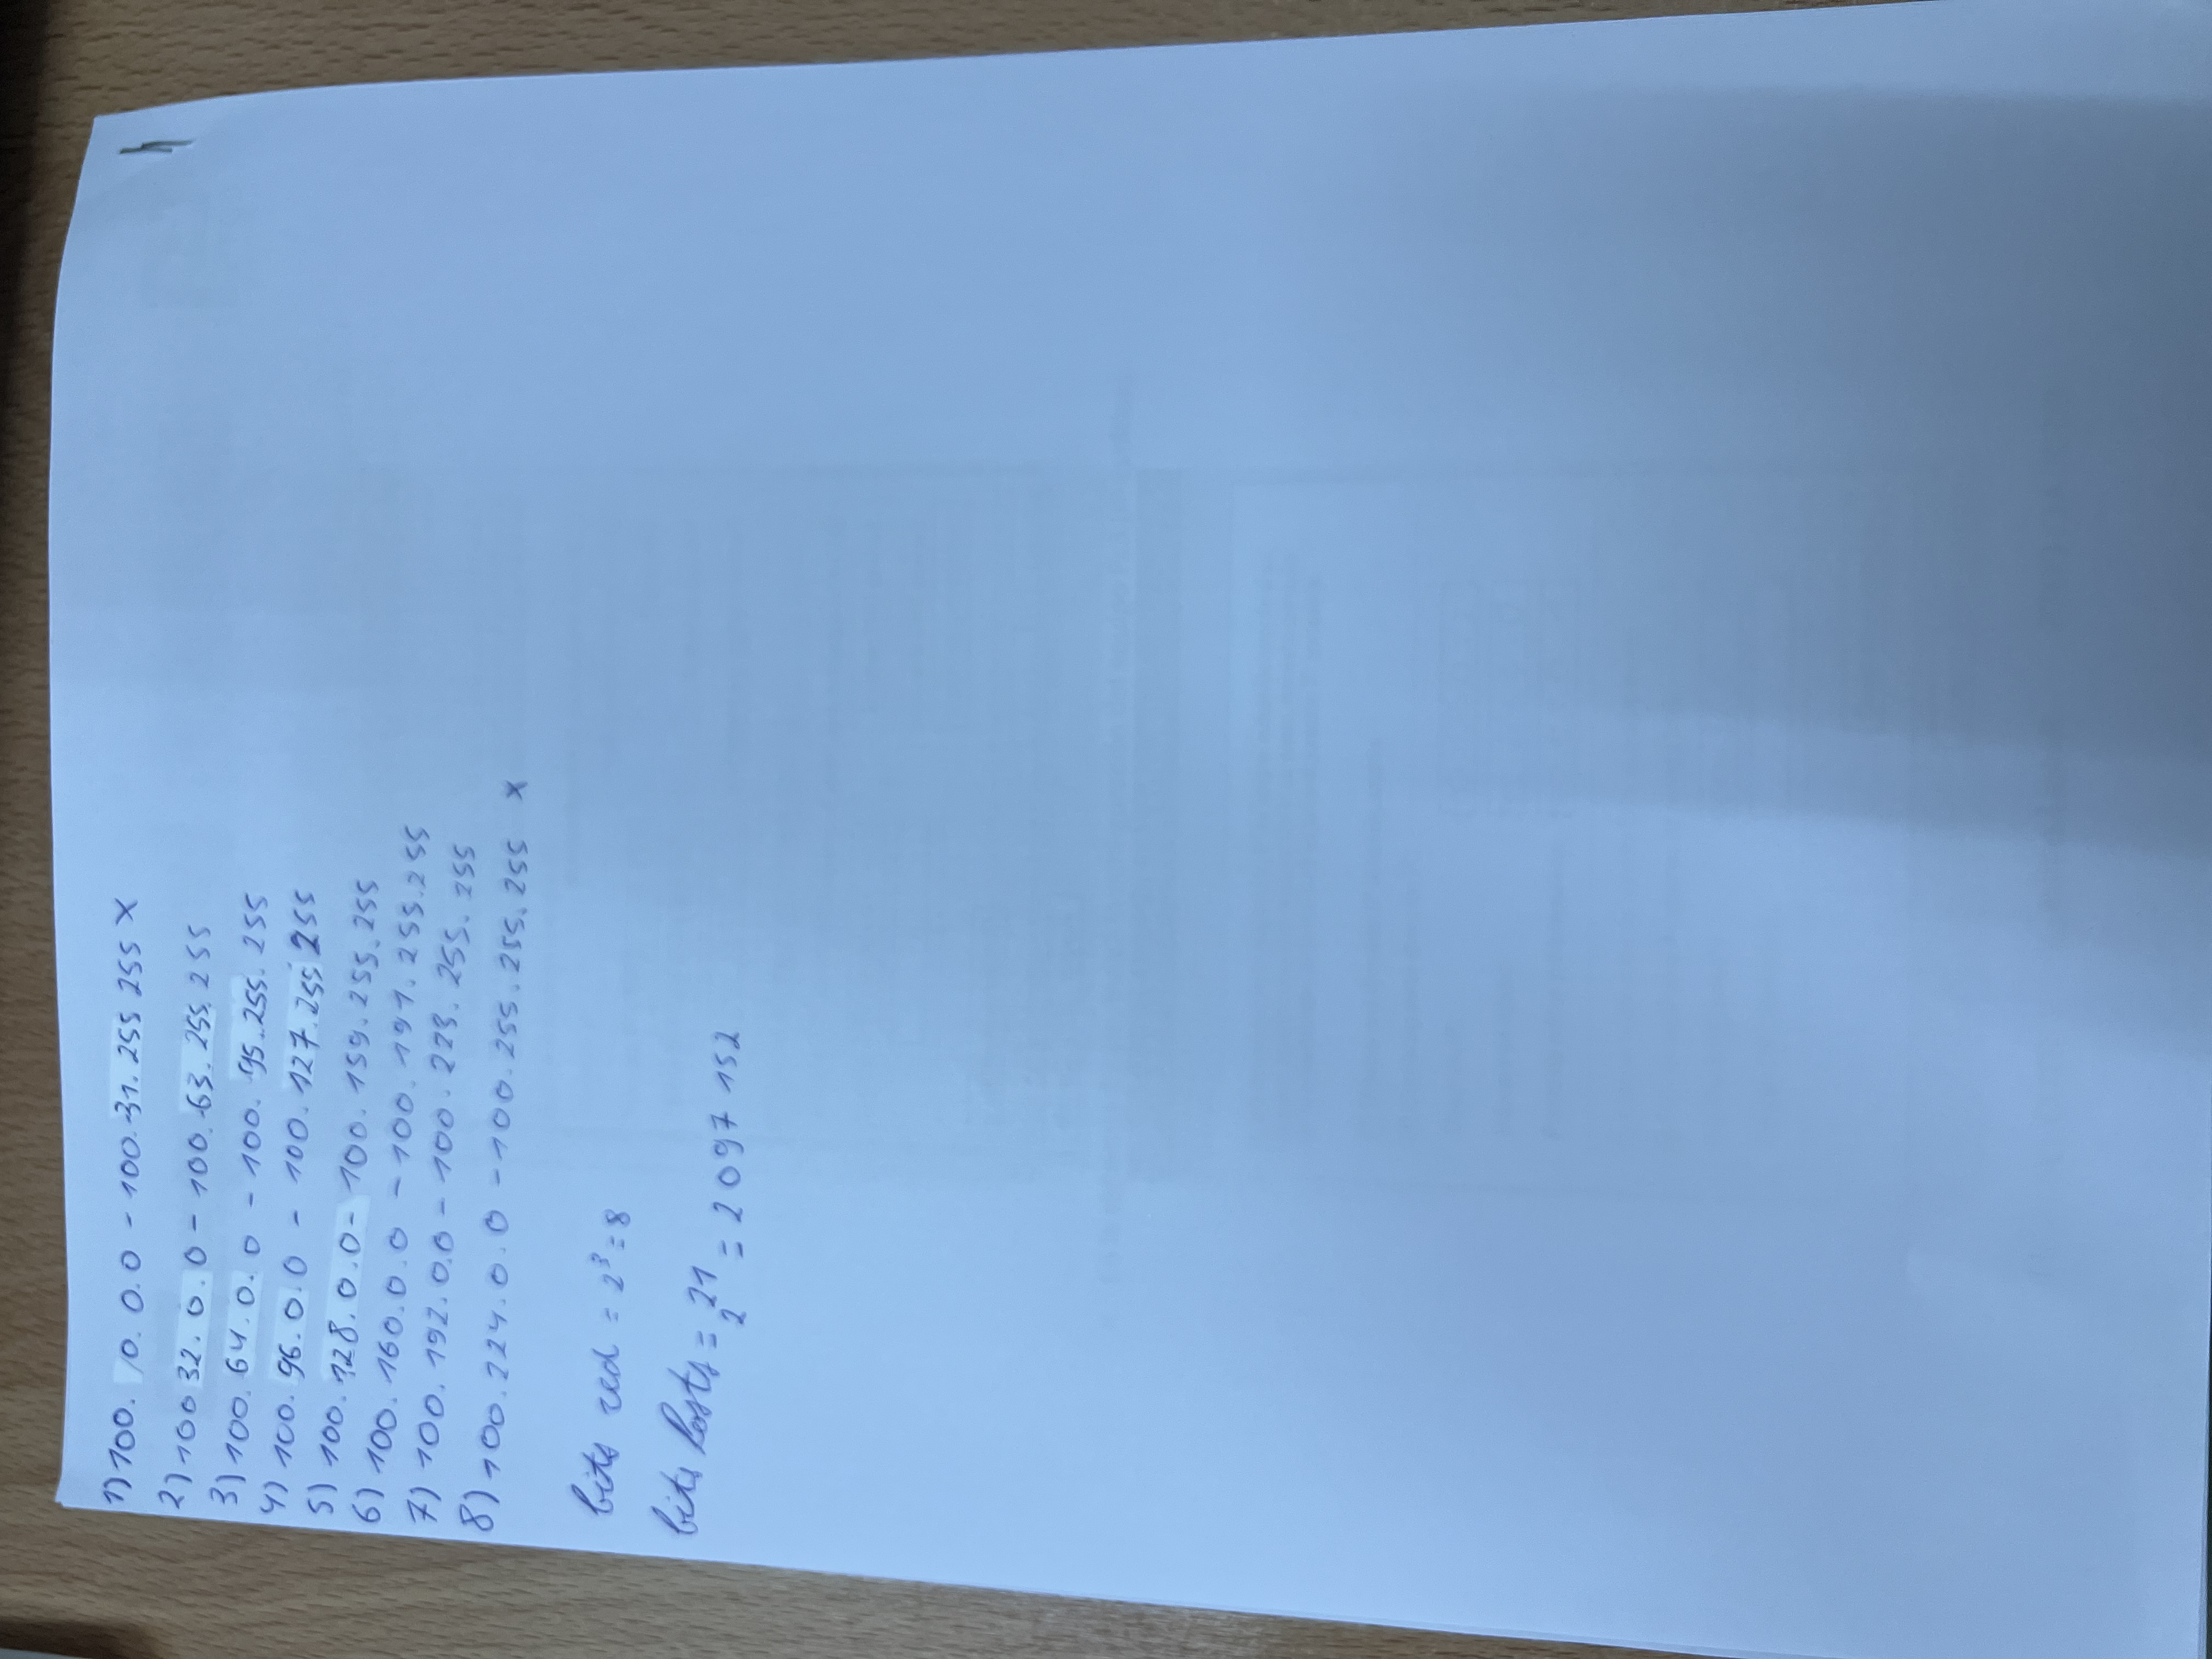 1) 100. 0. 0. 0 - 100. 31. 255 255 X
2) 100 32. 0. 0 - 100. 63. 255. 255
3) 100. 64. 0. 0 - 100. 95. 255. 255
4) 100. 96. 0. 0 - 100. 127. 255 255
5) 100. 128. 0. 0 - 100. 159. 255. 255
6) 100. 160. 0. 0 - 100. 191. 255. 255
7) 100. 192. 0. 0 - 100. 223. 255. 255
8) 100. 224. 0. 0 - 100. 255. 255. 255 x
bits red = 2³ = 8
bits hosts = 2²¹ = 2 097 152